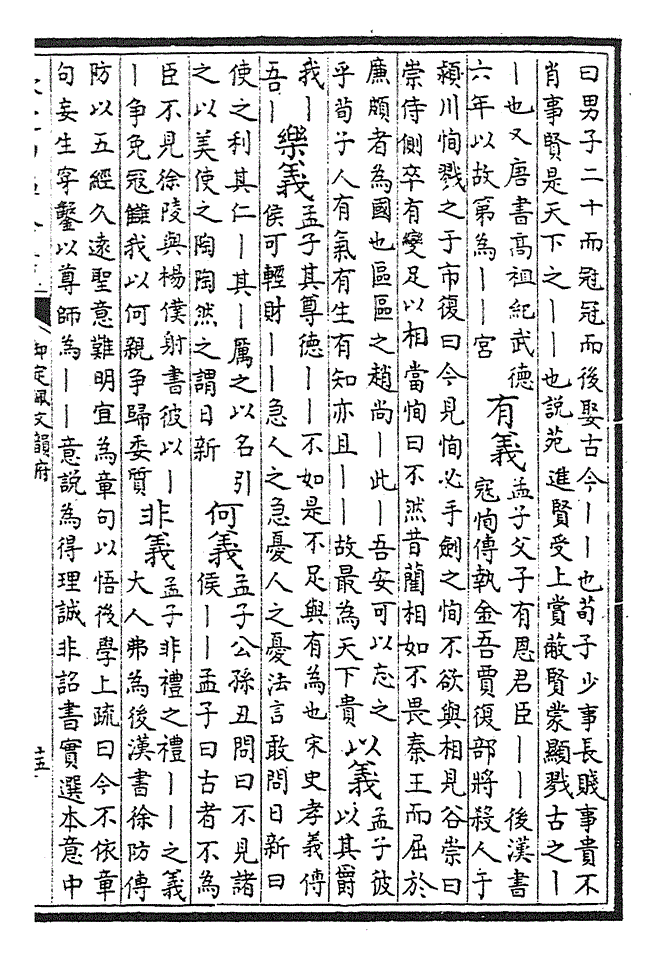 曰男子二十而冠冠而後娶古今——也荀子少事長賤事貴不
肖事賢是天下之——也說苑進賢受上賞蔽賢蒙顯戮古之—
—也又唐書高祖紀武德
六年以故第為——宮
有義
孟子父子有恩君臣——後漢書
寇恂傳執金吾賈復部將殺人于
潁川恂戮之于市復曰今見恂必手劍之恂不欲與相見谷崇曰
崇侍側卒有變足以相當恂曰不然昔藺相如不畏秦王而屈於
廉頗者為國也區區之趙尚—此—吾安可以忘之
乎荀子人有氣有生有知亦且——故最為天下貴
以義
孟子彼
以其爵
我—
吾—
樂義
孟子其尊德——不如是不足與有為也宋史孝義傳
侯可輕財——急人之急憂人之憂法言敢問日新曰
使之利其仁—其—厲之以名引
之以美使之陶陶然之謂日新
何義
孟子公孫丑問曰不見諸
侯——孟子曰古者不為
臣不見徐陵與楊僕射書彼以—
—争免寇讎我以何親争歸委質
非義
孟子非禮之禮——之義
大人弗為後漢書徐防傳
防以五經久遠聖意難明宜為章句以悟後學上疏曰今不依章
句妄生穿鑿以尊師為——意說為得理誠非詔書實選本意中
御定佩文韻府